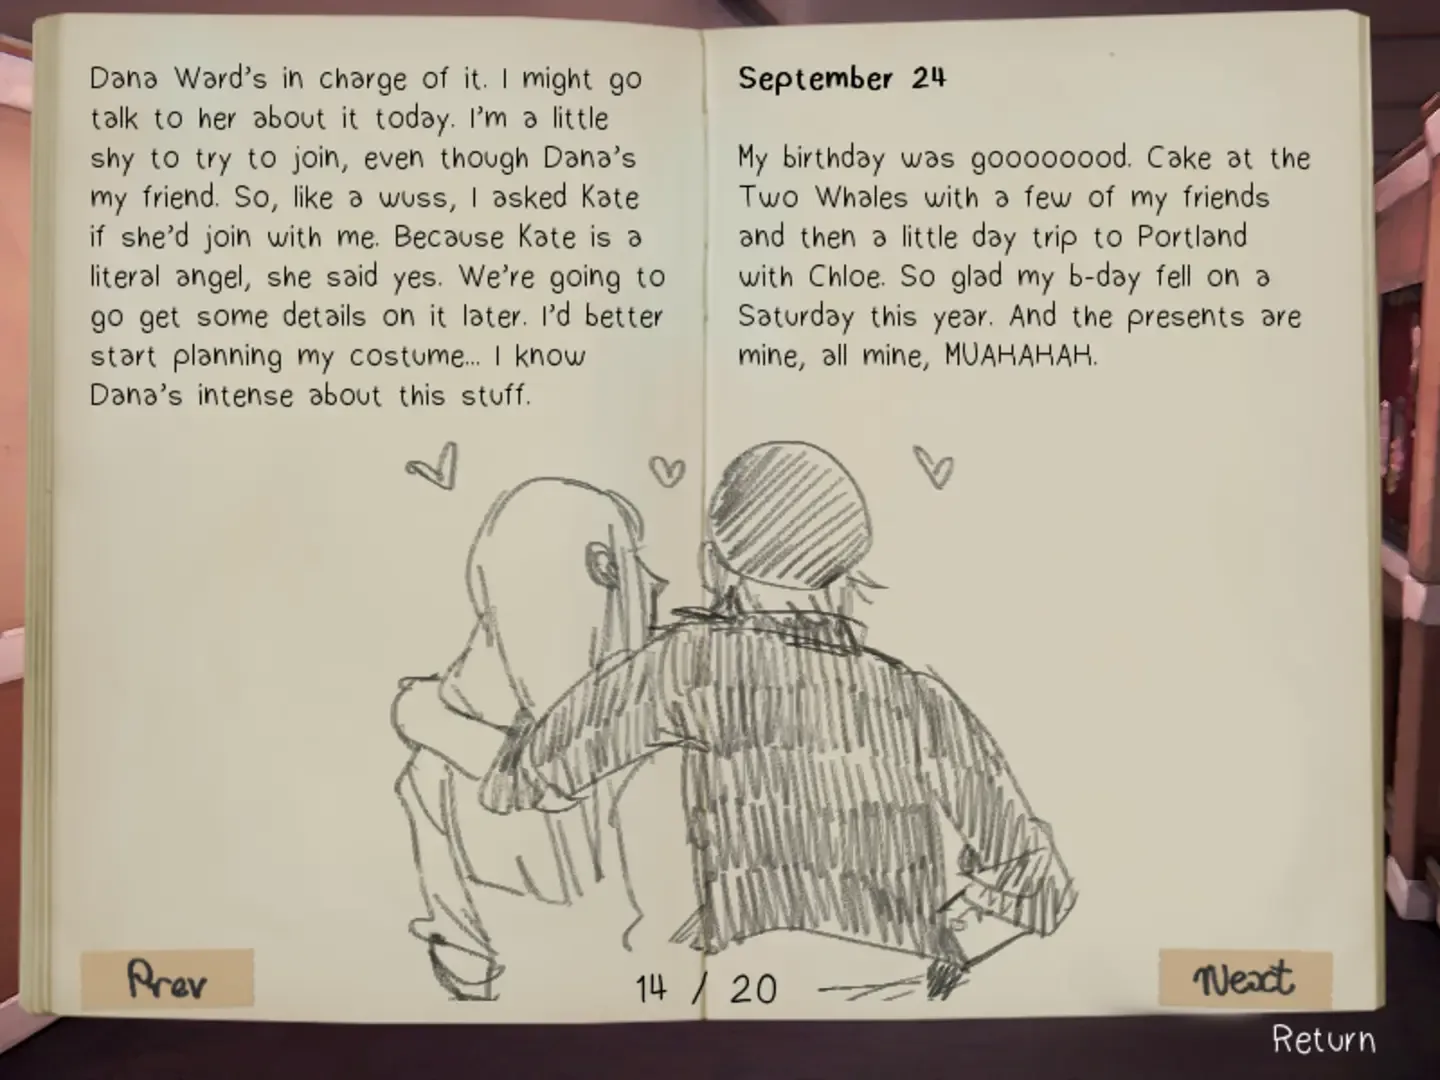 Dana Ward's in charge of it. I might go
talk to her about it today. I'm a little
shy to try to join, even though Dana's
my friend. So, like a wuss, I asked Kate
if she'd join with me. Because Kate is a
literal angel, she said yes. We're going to
go get some details on it later. I'd better
start planning my costume... I know
Dana's intense about this stuff.
September 24
My birthday was goooooood. Cake at the
Two Whales with a few of my friends
and then a little day trip to Portland
with Chloe. So glad my b-day fell on a
Saturday this year. And the presents are
mine, all mine, MUAHAHAH.
Prev
14 / 20
Next
Return